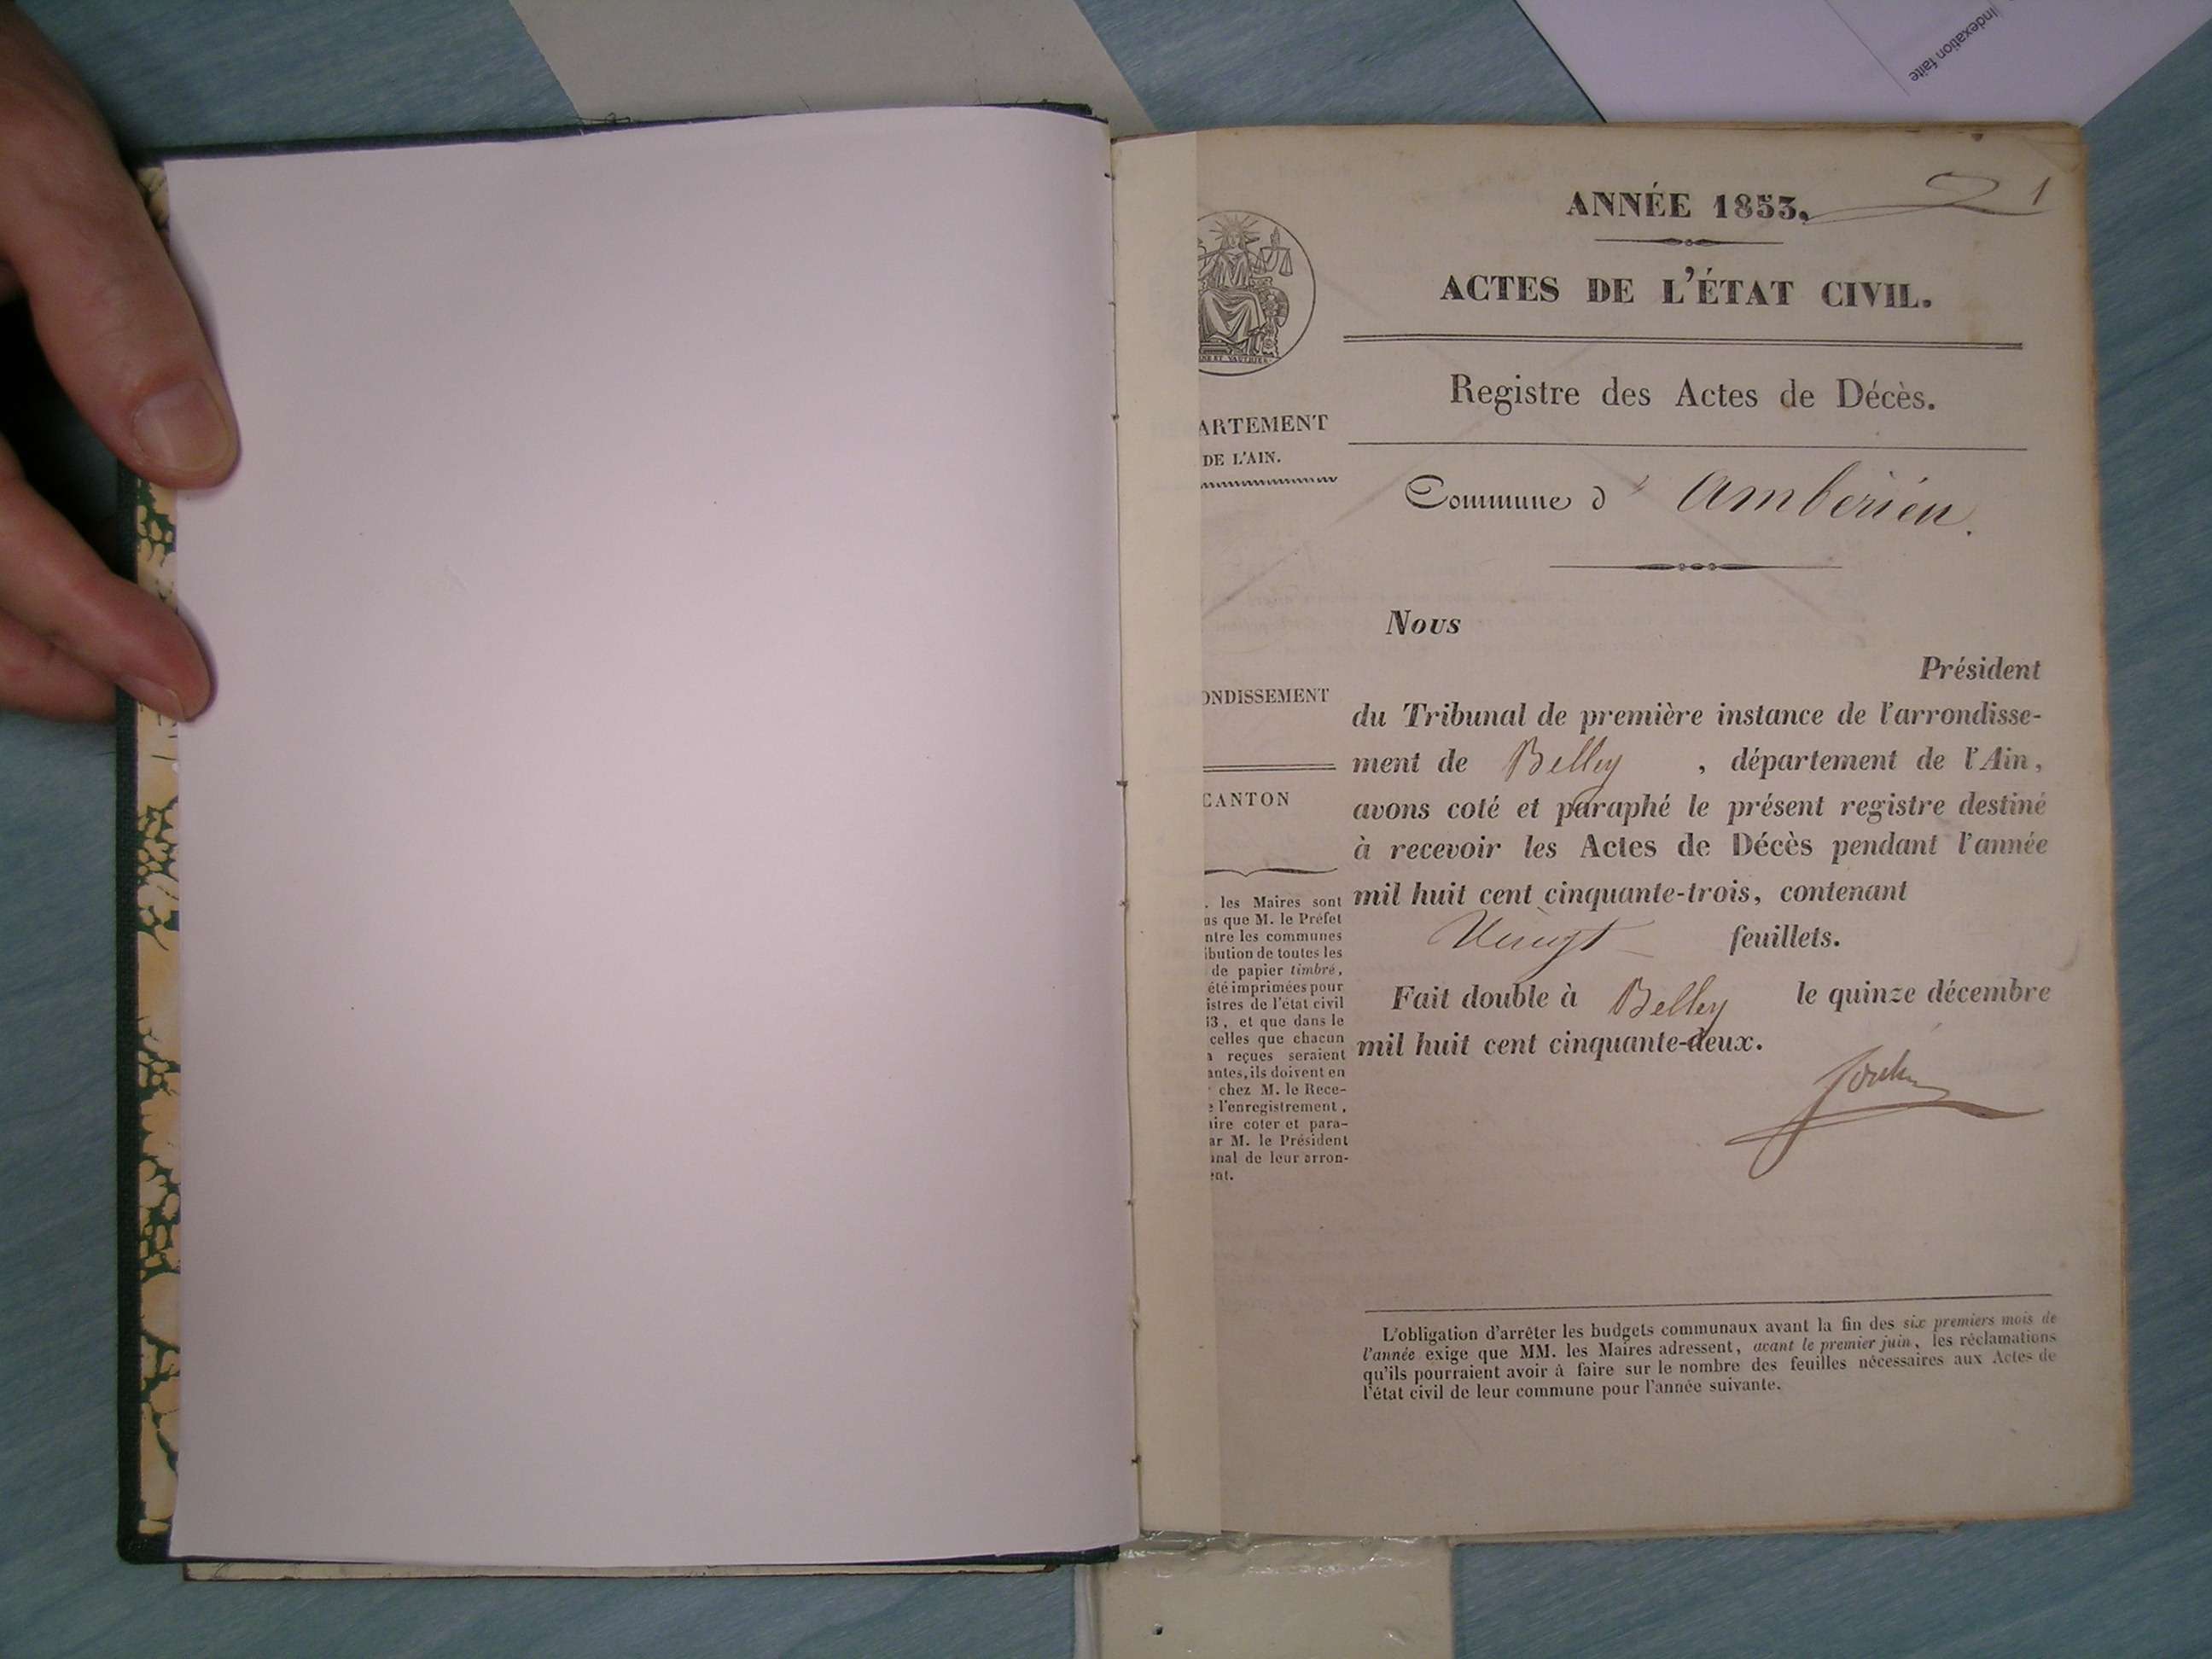 Indexation faite
ANNÉE 1853.
1
ACTES DE L'ÉTAT CIVIL.
Registre des Actes de Décès.
ARTEMENT
DE L'AIN.
Commune d' Amberieu.
Nous
Président
ONDISSEMENT
du Tribunal de première instance de l'arrondisse-
ment de Belley , département de l'Ain,
CANTON
avons coté et paraphé le présent registre destiné
à recevoir les Actes de Décès pendant l'année
mil huit cent cinquante-trois, contenant
Vingt feuillets.
Fait double à Belley le quinze décembre
mil huit cent cinquante-deux.
. les Maires sont
us que M. le Préfet
ntre les communes
ibution de toutes les
de papier timbré,
été imprimées pour
istres de l'état civil
53, et que dans le
celles que chacun
a reçues seraient
antes, ils doivent en
chez M. le Rece-
e l'enregistrement,
aire coter et para-
ar M. le Président
unal de leur arron-
ent.
L'obligation d'arrêter les budgets communaux avant la fin des six premiers mois de
l'année exige que MM. les Maires adressent, avant le premier juin, les réclamations
qu'ils pourraient avoir à faire sur le nombre des feuilles nécessaires aux Actes de
l'état civil de leur commune pour l'année suivante.